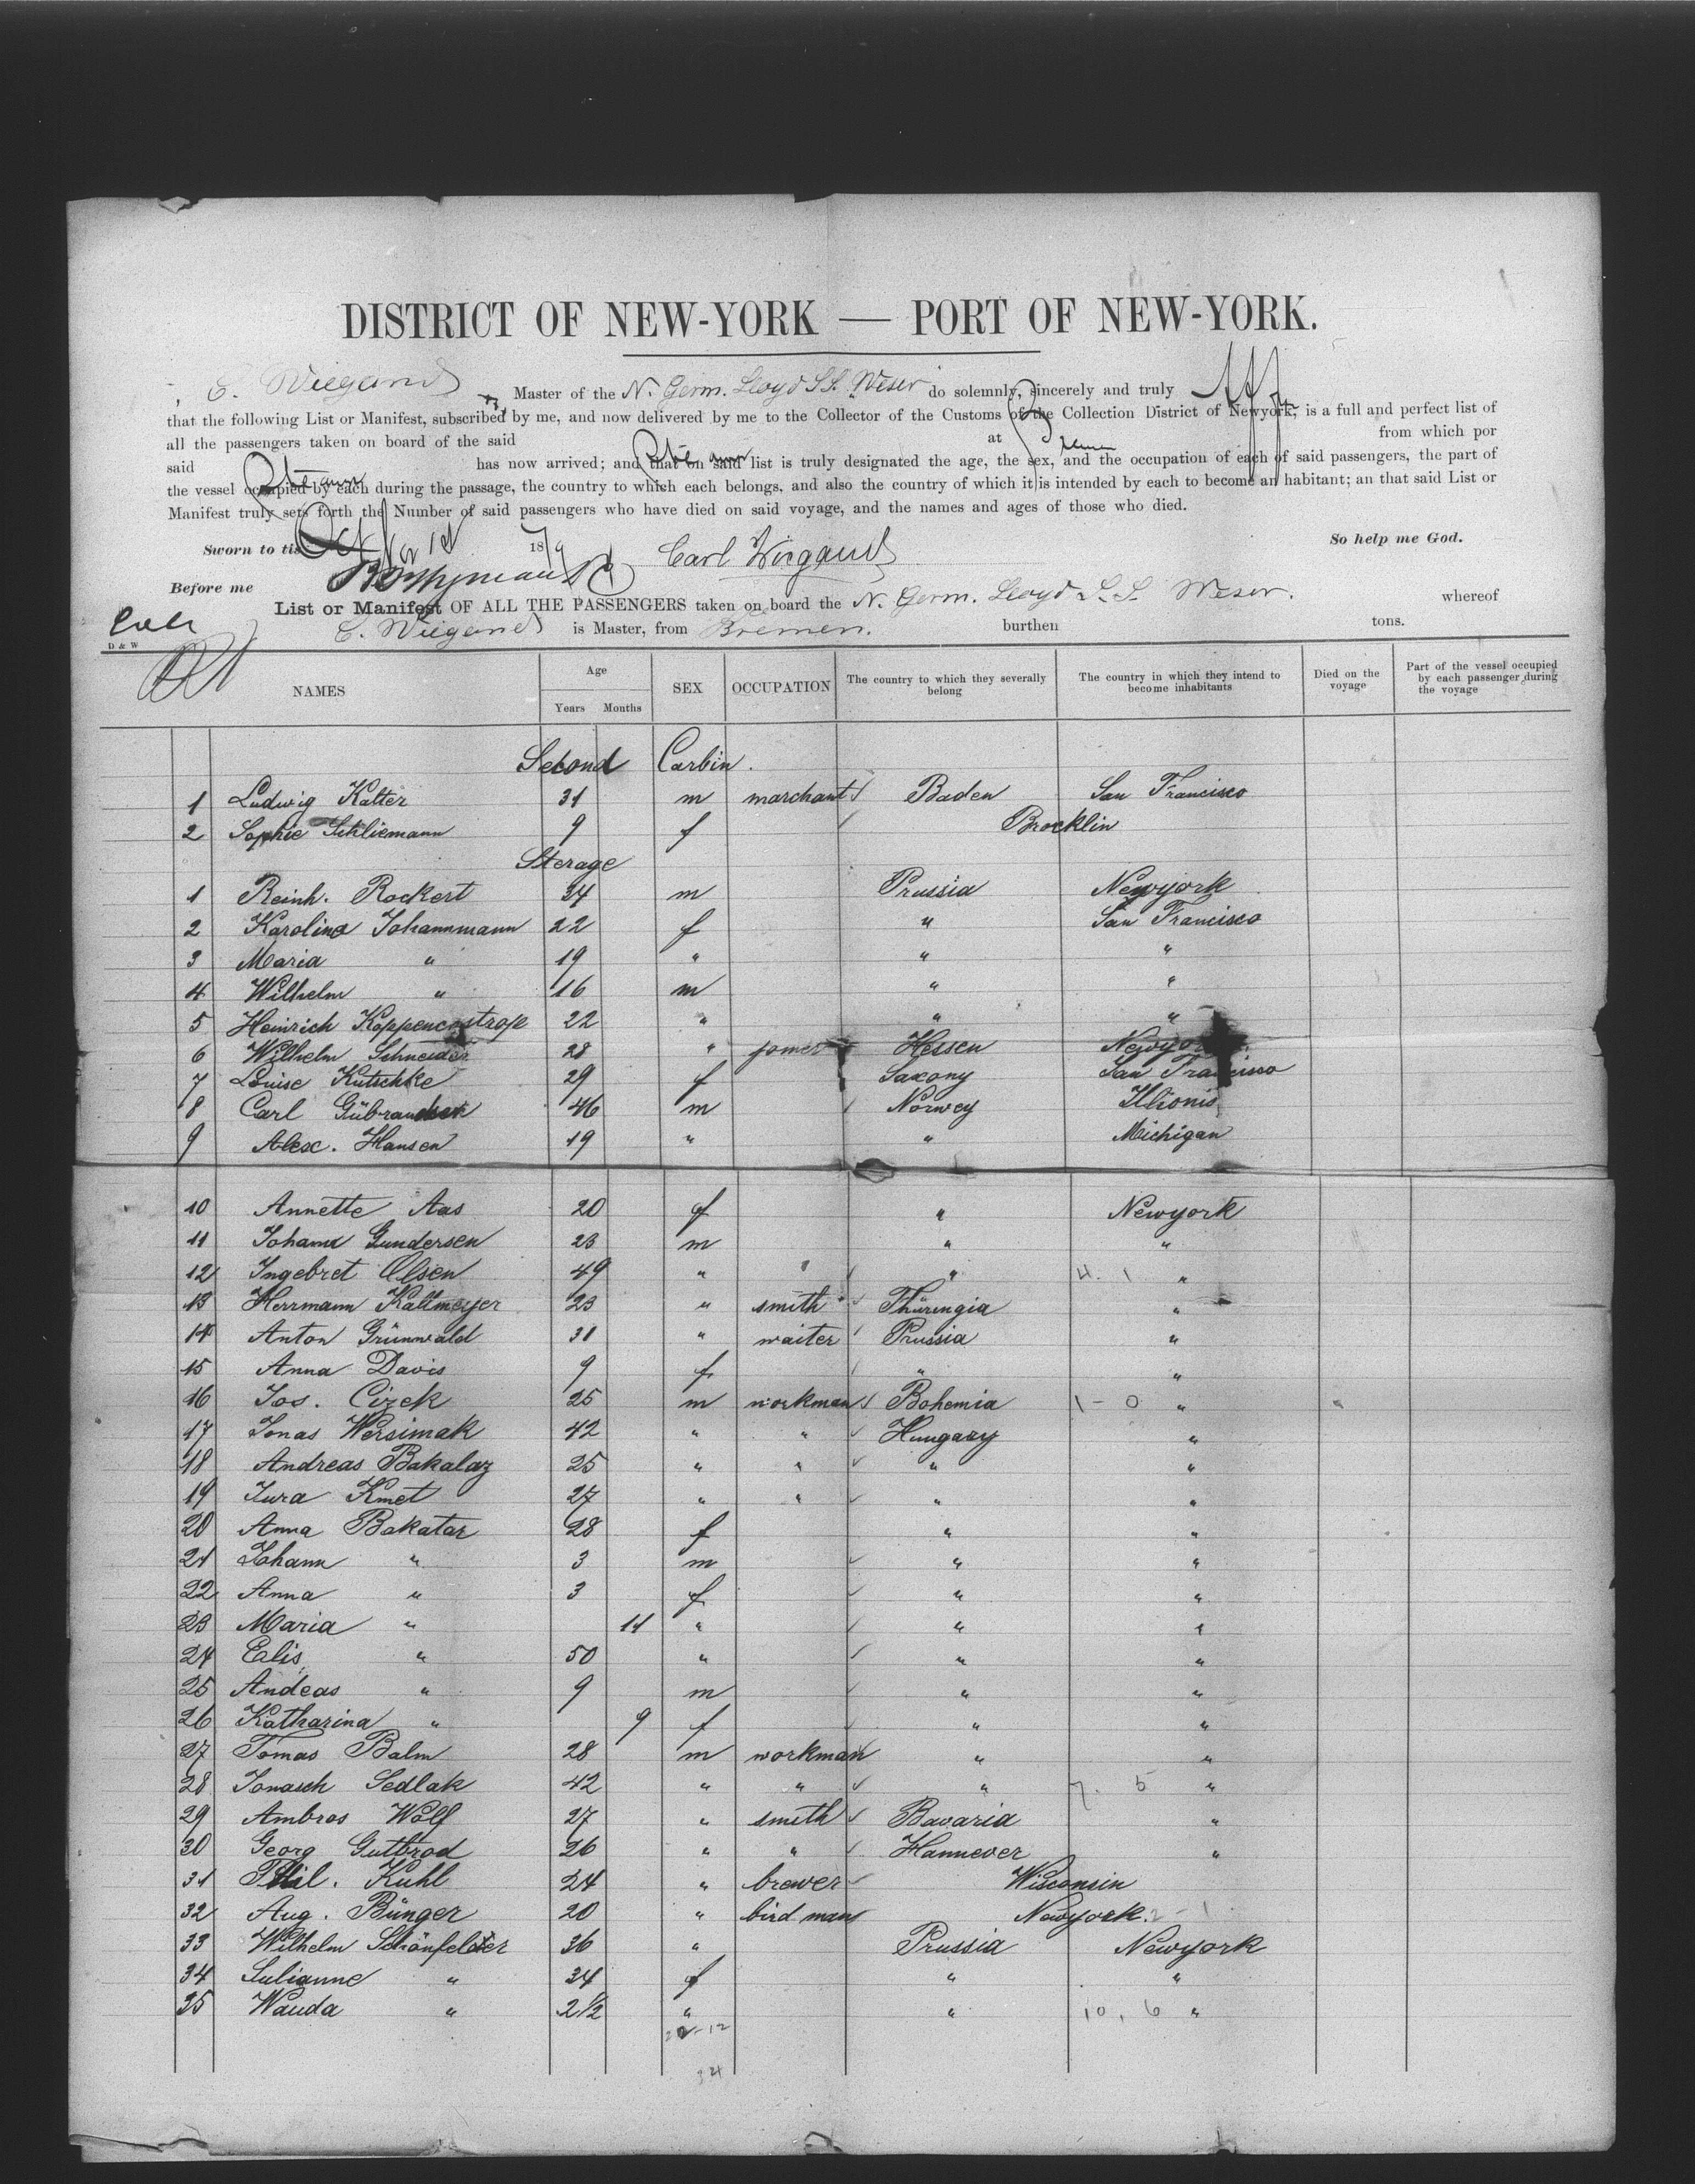 DISTRICT OF NEW-YORK — PORT OF NEW-YORK.
C. Wiegand Master of the N. Germ. Lloyd S.S. Weser do solemnly, sincerely and truly
that the following List or Manifest, subscribed by me, and now delivered by me to the Collector of the Customs of the Collection District of Newyork, is a full and perfect list of
all the passengers taken on board of the said at from which por
said has now arrived; and that on said list is truly designated the age, the sex, and the occupation of each of said passengers, the part of
the vessel occupied by each during the passage, the country to which each belongs, and also the country of which it is intended by each to become an habitant; an that said List or
Manifest truly sets forth the Number of said passengers who have died on said voyage, and the names and ages of those who died.
Sworn to tis 1879 Carl Wiegand So help me God.
Before me
List or Manifest OF ALL THE PASSENGERS taken on board the N. Germ. Lloyd S.S. Weser. whereof
C. Wiegand is Master, from Bremen. burthen tons.
D & W
NAMES Age Years Months SEX OCCUPATION The country to which they severally belong The country in which they intend to become inhabitants Died on the voyage Part of the vessel occupied by each passenger during the voyage
Second Carbin.
1 Ludwig Kalter 31 m marchant Baden San Francisco
2 Sophie Schliemann 9 f Brocklin
Sterage
1 Reinh. Rockert 34 m Prussia Newyork
2 Karolina Johannmann 22 f " San Francisco
3 Maria " 19 " " "
4 Wilhelm " 16 m " "
5 Heinrich Koppencastrop 22 " " "
6 Wilhelm Schneider 28 " Hessen Newyork
7 Louise Kutschke 29 f Saxony San Francisco
8 Carl 46 m Norwey Illionis
9 Alex. Hansen 19 " " Michigan
10 Annette Aas 20 f " Newyork
11 Johann Gundersen 23 m " "
12 Ingebret Olsen 49 " " 4. 1 "
13 Herrmann Kaltmeyer 23 " smith Thüringia "
14 Anton Grünwald 31 " waiter Prussia "
15 Anna Davis 9 f " "
16 Jos. Cizek 25 m workman Bohemia 1 - 0 "
17 Jonas Wersimak 42 " " Hungary "
18 Andreas Bakalaz 25 " " " "
19 Jura Kmet 27 " " " "
20 Anna Bakatar 28 f " "
21 Johann " 3 m " "
22 Anna " 3 f " "
23 Maria " 11 " " "
24 Elis " 50 " " "
25 Andeas " 9 m " "
26 Katharina " 9 f " "
27 Tomas Balm 28 m workman " "
28 Jonasch Sedlak 42 " " " 7. 5 "
29 Ambros Wolf 27 " smith Bavaria "
30 Georg Gutbrod 26 " " Hannever "
31 Phil. Kuhl 24 " brewer Wisconsin
32 Aug. Bünger 20 " bird man Newyork. 2 - 1
33 Wilhelm Schönfelder 36 " Prussia Newyork
34 Julianne " 34 f " "
35 Wanda " 2 1/2 " " 10, 6 "